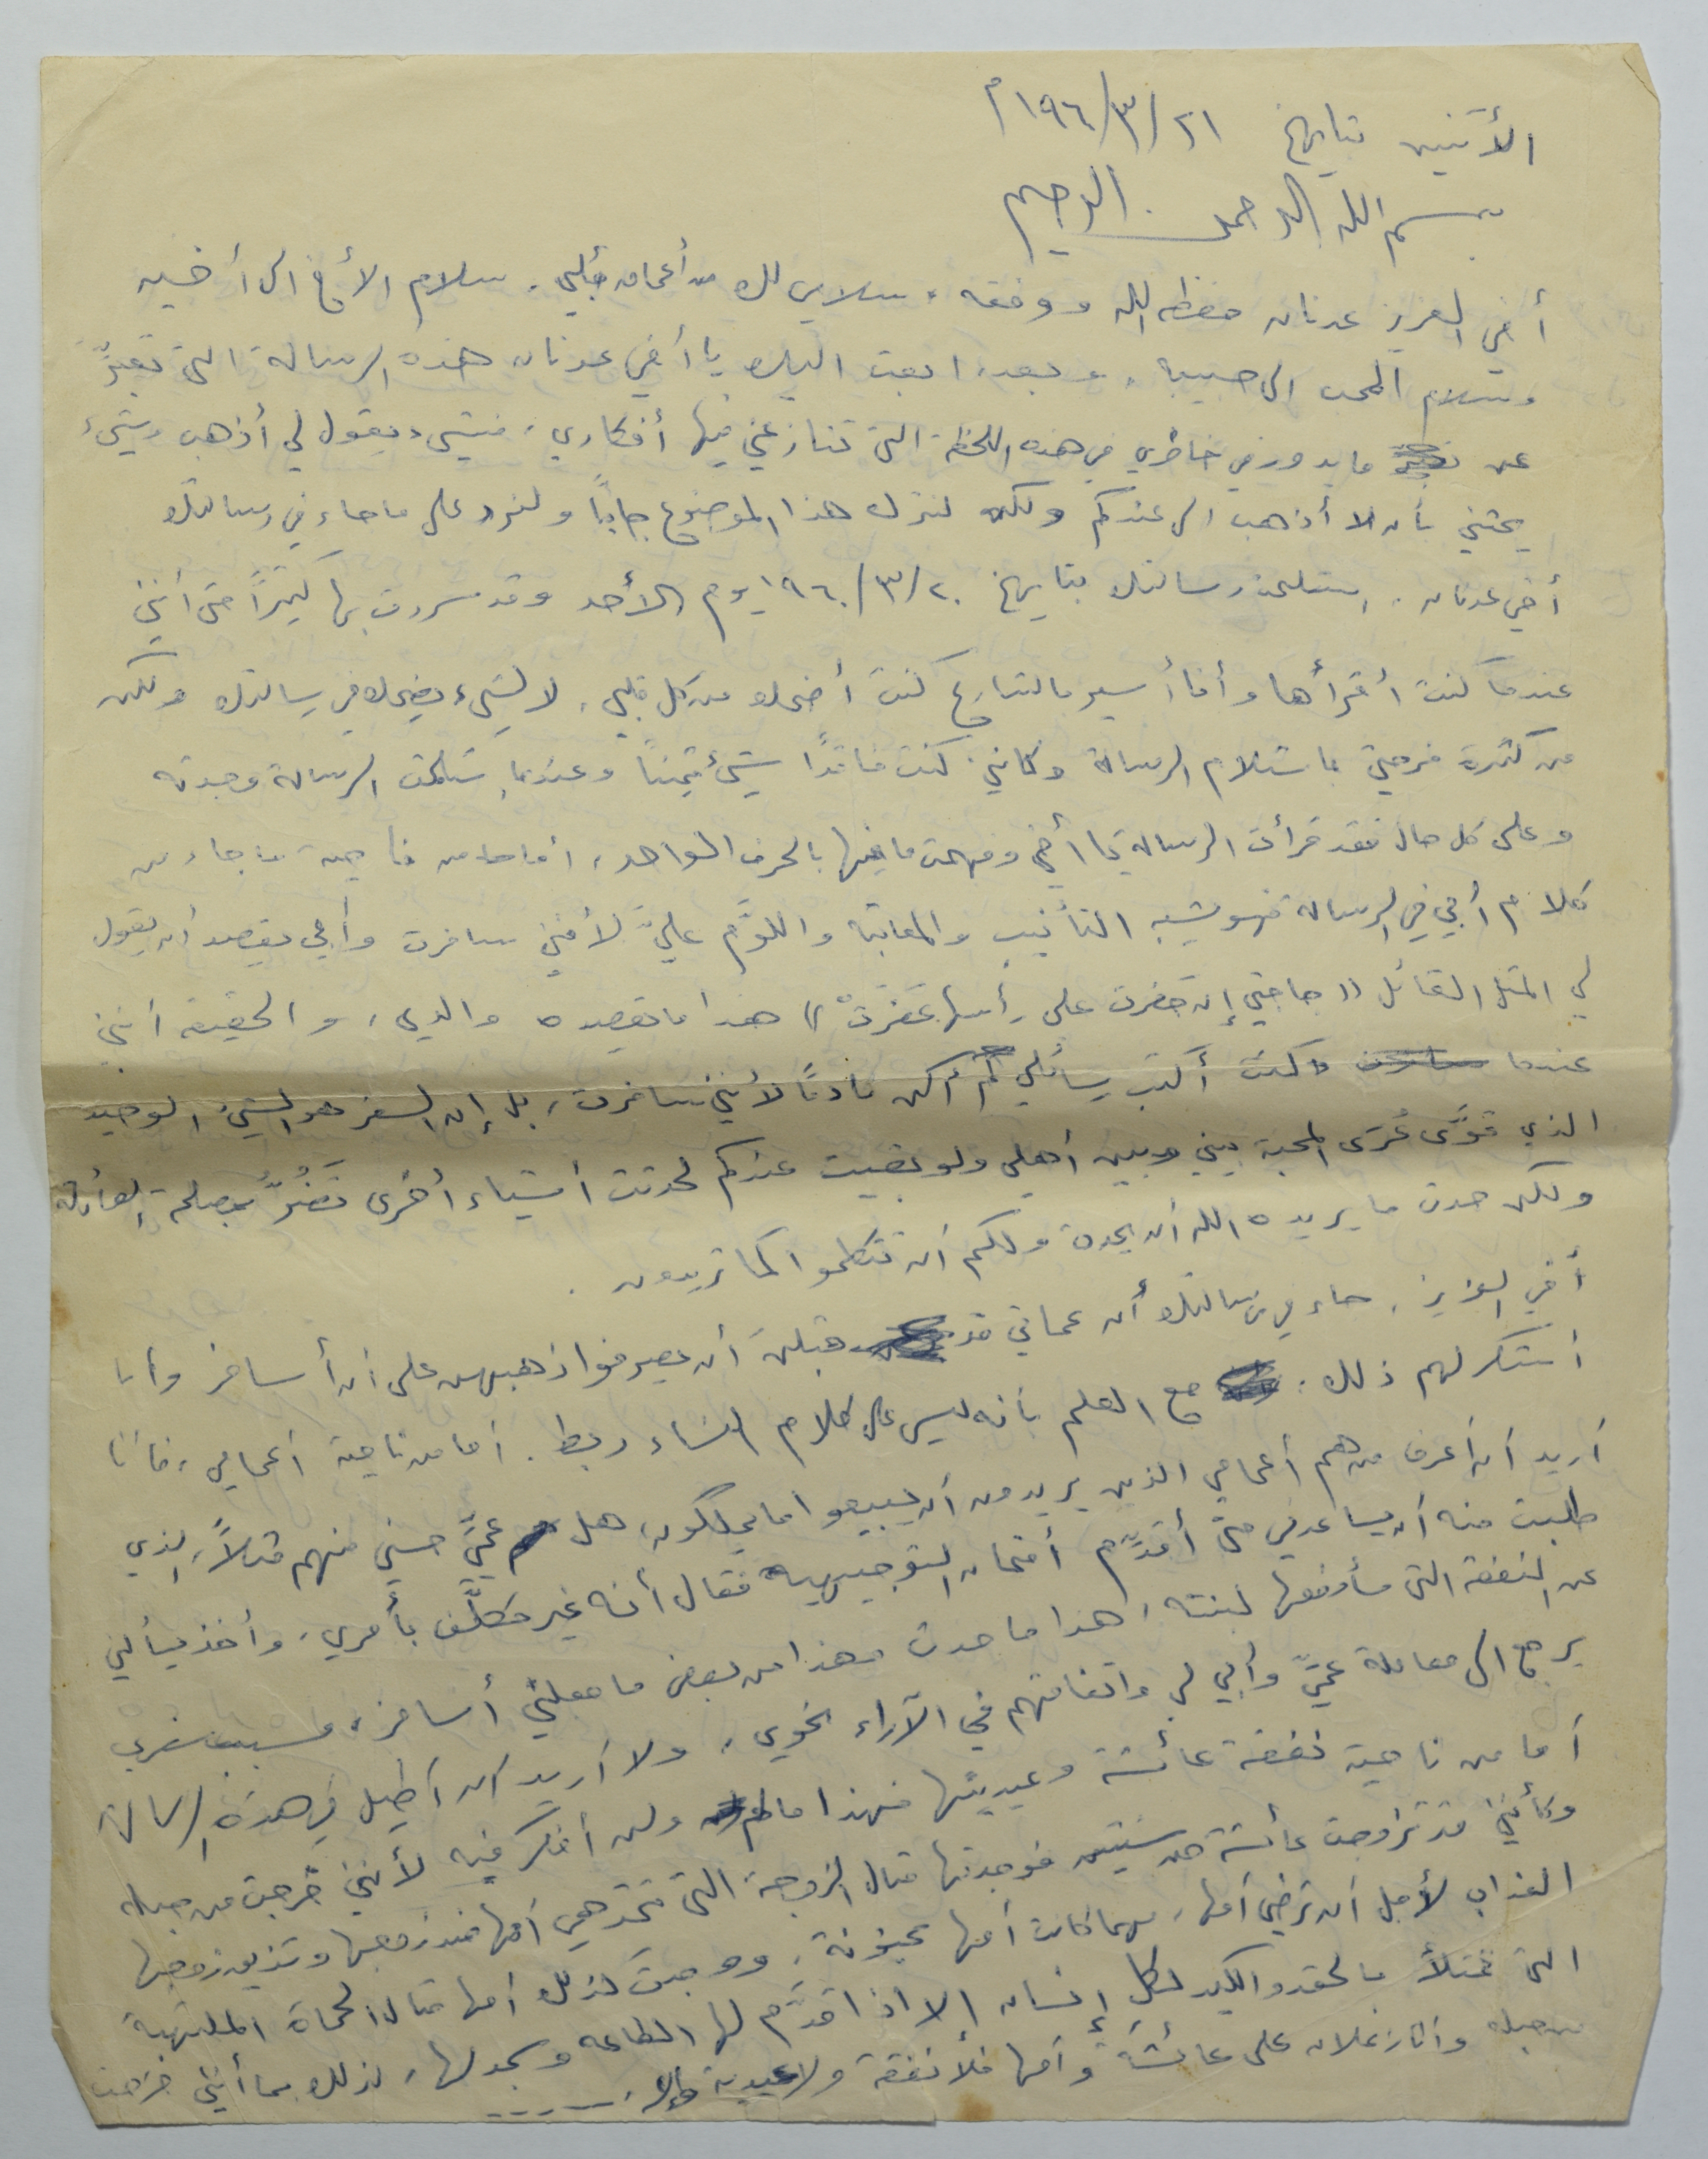 الأثنين بتاريخ ٢١/٣/١٩٦٠م
بسم الله الرحمن الرحيم
أخي العزيز عدنان حفظه الله ووفقه، سلامي لك من أعماق قلبي، سلام الأخ الى أخيه
وسلام المحب الى حبيبه، وبعد، ابعث اليك يا أخي عدنان هذه الرسالة التي تعبّر
عن ما يدور في خاطري في هذه اللحظة التي تنازعني فيها أفكاري، فشيء يقول لي أذهب وشيء
يحثني بأن لا أذهب الى عندكم ولكن لنترك هذا الموضوع جانباً ولنرد على ما جاء في رسالتك
أخي عدنان، استلمت رسالتك بتاريخ ٢٠/٣/١٩٦٠ يوم الأحد وقد سررت بها كثيراً حتى أنني
عندما كنت أقرأها وأنا أسير بالشارع كنت أضحك من كل قلبي، لا لشيء يضحك في رسالتك ولكن
من كثرة فرحتي باستلام الرسالة وكأني كنت فاقداً شيئ ثميناً وعندما استلمت الرسالة وجدته
وعلى كل حال فقد قرأت الرسالة يا أخي وفهمت ما فيها بالحرف الواحد، أما من ناحية ما جاء من
كلام أبي في الرسالة فهو يشبه التأنيب والمعاتبة واللوَّم عليَّ لأنني سافرت وأبي يقصد أن يقول
لي المثل القائل (( جاجتي إن حفرت على رأسها عفرتْ )) هذا ما يقصده والدي، والحقيقة أنني
عندما كنت أكتب رسائلي لم أكن نادماً لأنني سافرت، بل إن السفر هو الشيء الوحيد
الذي قوَّى عُرَى المحبة بيني وبين أهلي ولو بقيت عندكم لحدثت أشياء أخرى تضُرُّ بمصلحة العائلة
ولكن حدث ما يريده الله أن يحدث ولكم أن تتكلموا كما تريدون.
أخي العزيز، جاء في رسالتك أن عماتي قد قبلن أن يصرفوا ذهبهن على أن أسافر وأنا
أشكر لهم ذلك، مع العلم بأنه ليس على كلام النساء ربط. أما من ناحية أعمامي، فأنا
أريد أن أعرف من هم أعمامي الذين يريدون أن يبيعوا ما يملكون، هل عميَّ حسني منهم مثلاً، الذي
طلبت منه أن يساعدني حتى أقدِّم أمتحان التوجيهية فقال أنه غير مكلَّف بأمري، وأخذ يسألني
عن النفقة التي سأدفعها لبنته، هذا ما حدث وهذا من بعض ما جعلني أسافر، وسبب سفري
يرجع الى معاملة عميَّ وأبي لي واتفاقهم في الآراء نحوي، ولا أريد أن أطيل في هذه الرسالة
أما من ناحية نفقة عائشة وعيديتها فهذا ما لم ولن أفكر فيه لأنني خرجت من جبله
وكأنني قد تزوجت عائشة من سنتين فوجدتها مثال الزوجة التي تتحد هي أمها ضد زوجها وتذيق زوجها
العذاب لأجل أن ترضي أمها، مهما كانت أمها مجنونة، ووجدت كذلك أمها مثال الحماة الملتهبة
التي تمتلأ بالحقد والكيد لكل إنسان إلا اذا قدَّم لها الطاعه وسجد لها، لذلك بما أنني خرجت
من جبله وأنا زعلان على عائشة وأمها فلا نفقة ولا عيدية